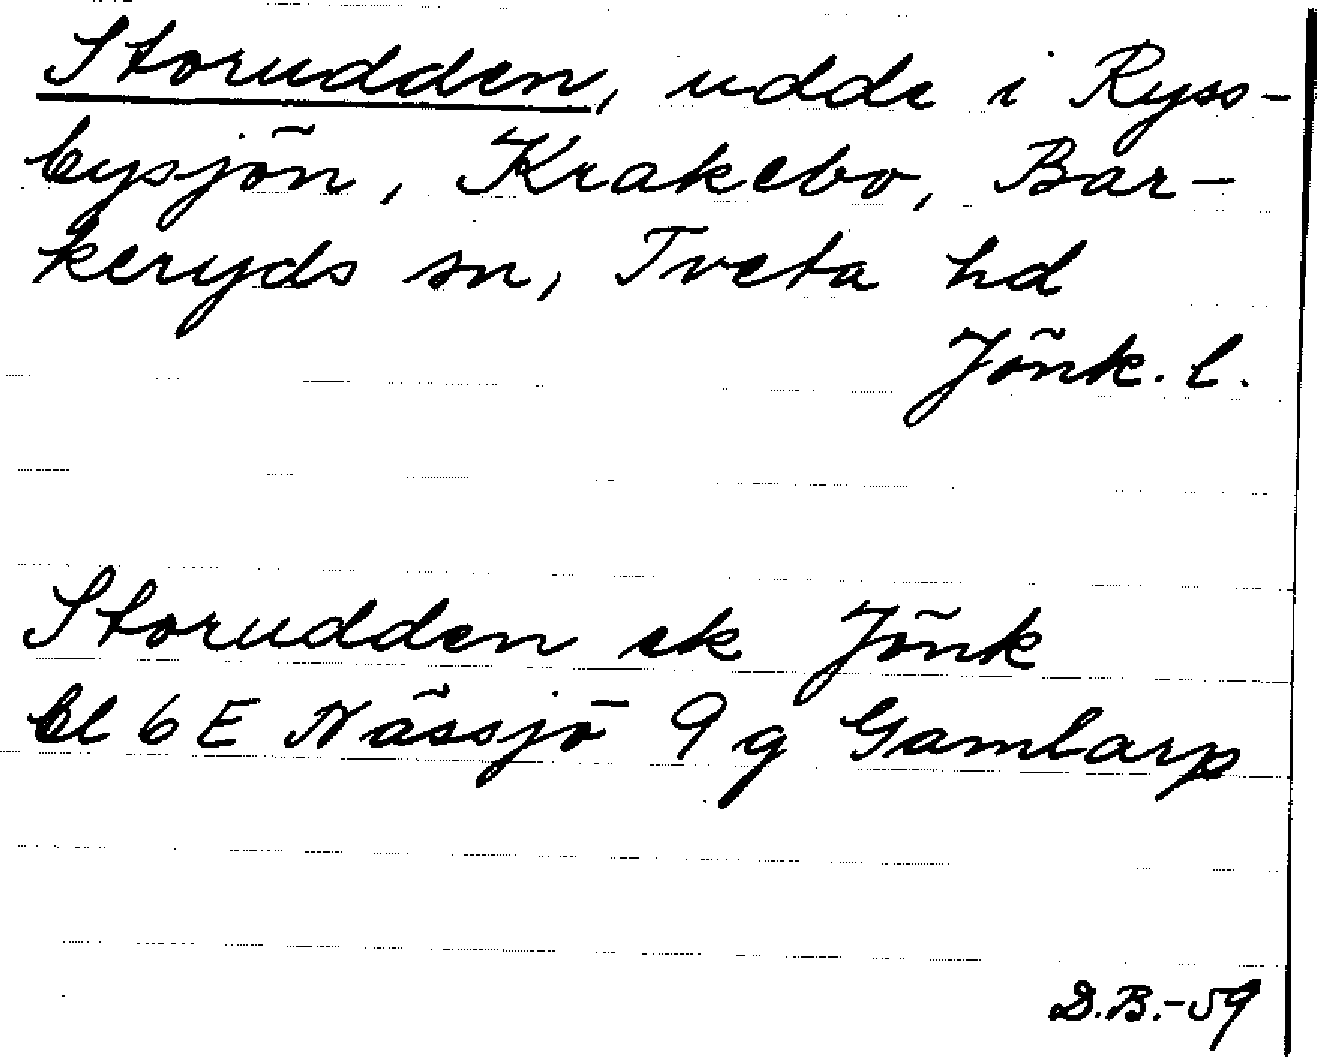 Storudden, udde i Ryss-
bysjön, Krakebo, Bar-
keryds sn, Tveta hd
Jönk. l.
Storudden ek Jönk
bl 6 E Nässjö 9 g Gamlarp
D.B.-59